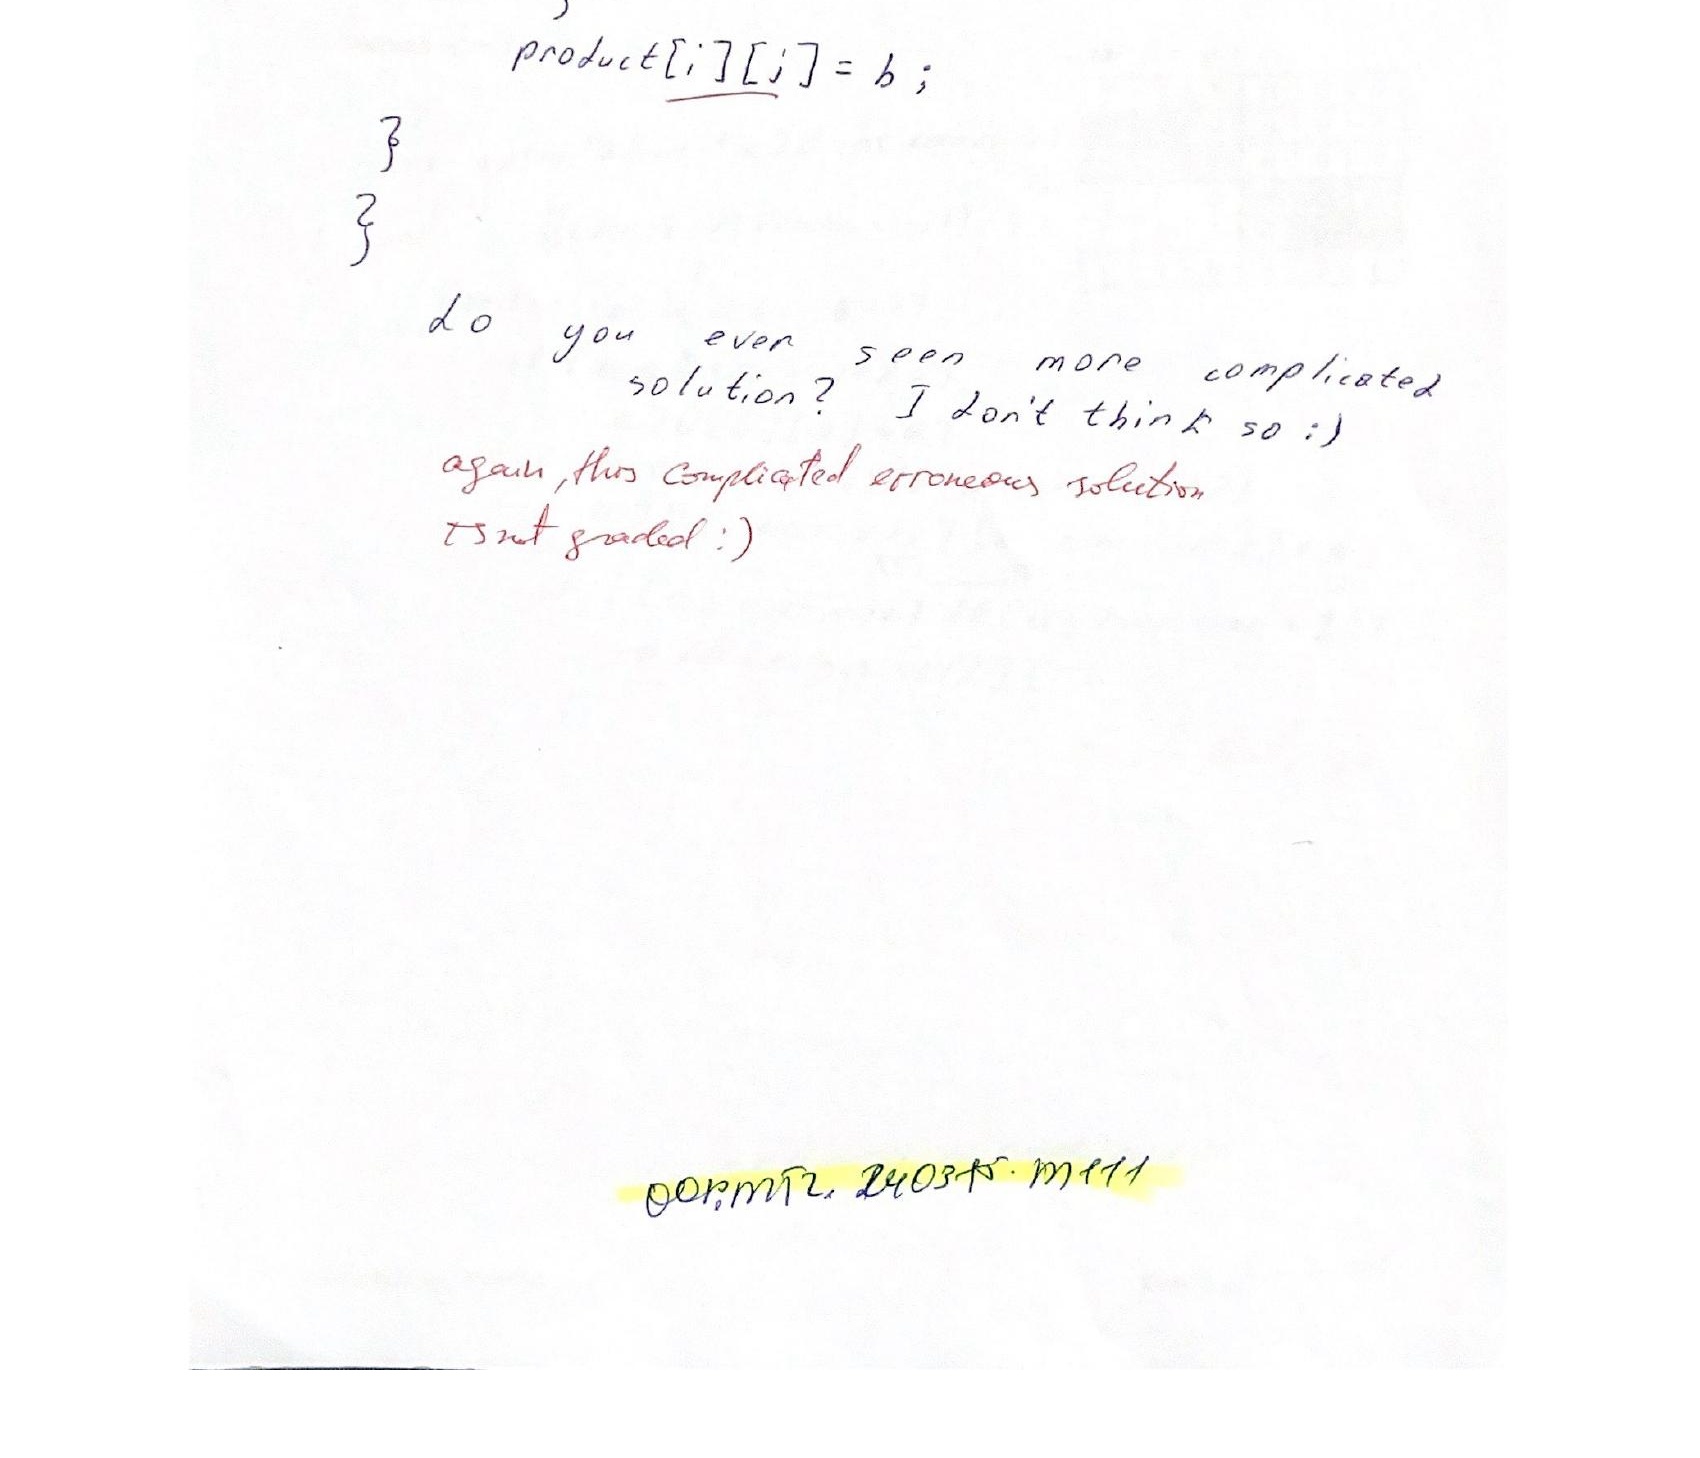 }
product[i][j] = b ;
}
}
do you ever seen more complicated
solution? I don't think so :)
again, this complicated erroneous solution
is not graded :)
OOP.MT2. 240315. M111